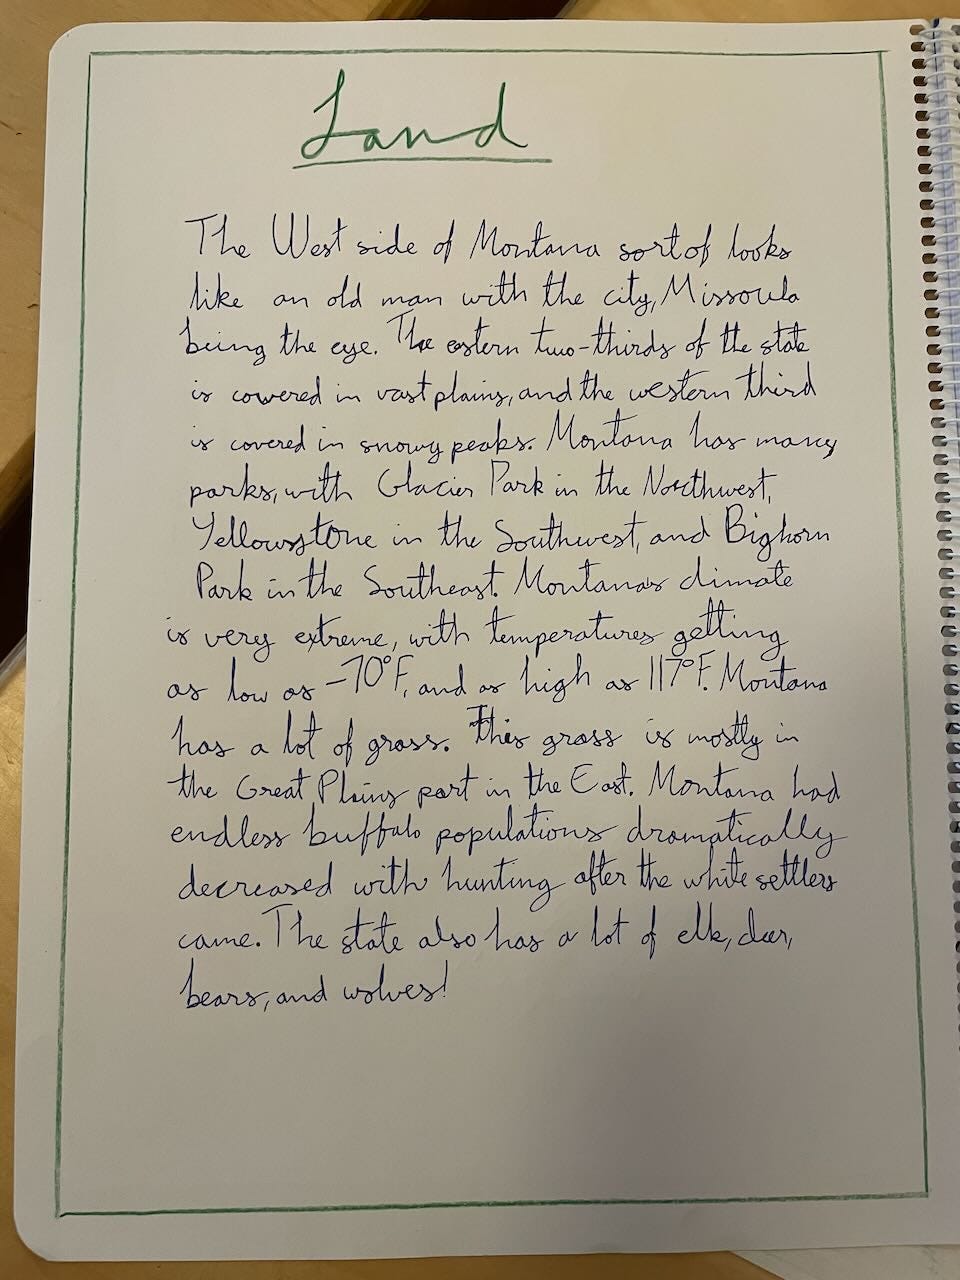 Land
The West side of Montana sort of looks
like an old man with the city, Missoula
being the eye. The eastern two-thirds of the state
is covered in vast plains, and the western third
is covered in snowy peaks. Montana has many
parks, with Glacier Park in the Northwest,
Yellowstone in the Southwest, and Bighorn
Park in the Southeast. Montana's climate
is very extreme, with temperatures getting
as low as -70°F, and as high as 117°F. Montana
has a lot of grass. This grass is mostly in
the Great Plains part in the East. Montana had
endless buffalo populations dramatically
decreased with hunting after the white settlers
came. The state also has a lot of elk, deer,
bears, and wolves!